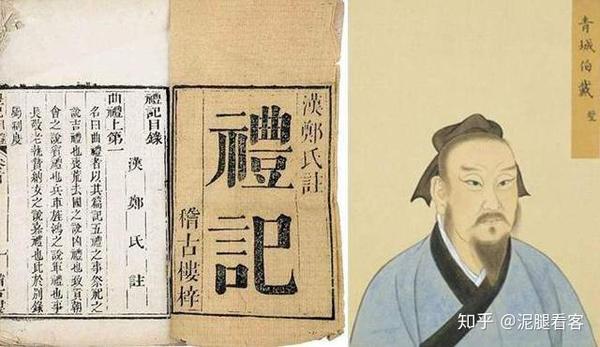 漢鄭氏註
禮記
稽古樓梓
禮記目錄
漢鄭氏註
曲禮上第一
名曰曲禮者以其篇記五禮之事祭祀之
說吉禮也喪荒去國之說凶禮也致貢朝
會之說賓禮也兵車旌鴻之說軍禮也事
長敬老執贄納女之說嘉禮也此於別錄
屬制度
青城伯戴聖
知乎 @泥腿看客